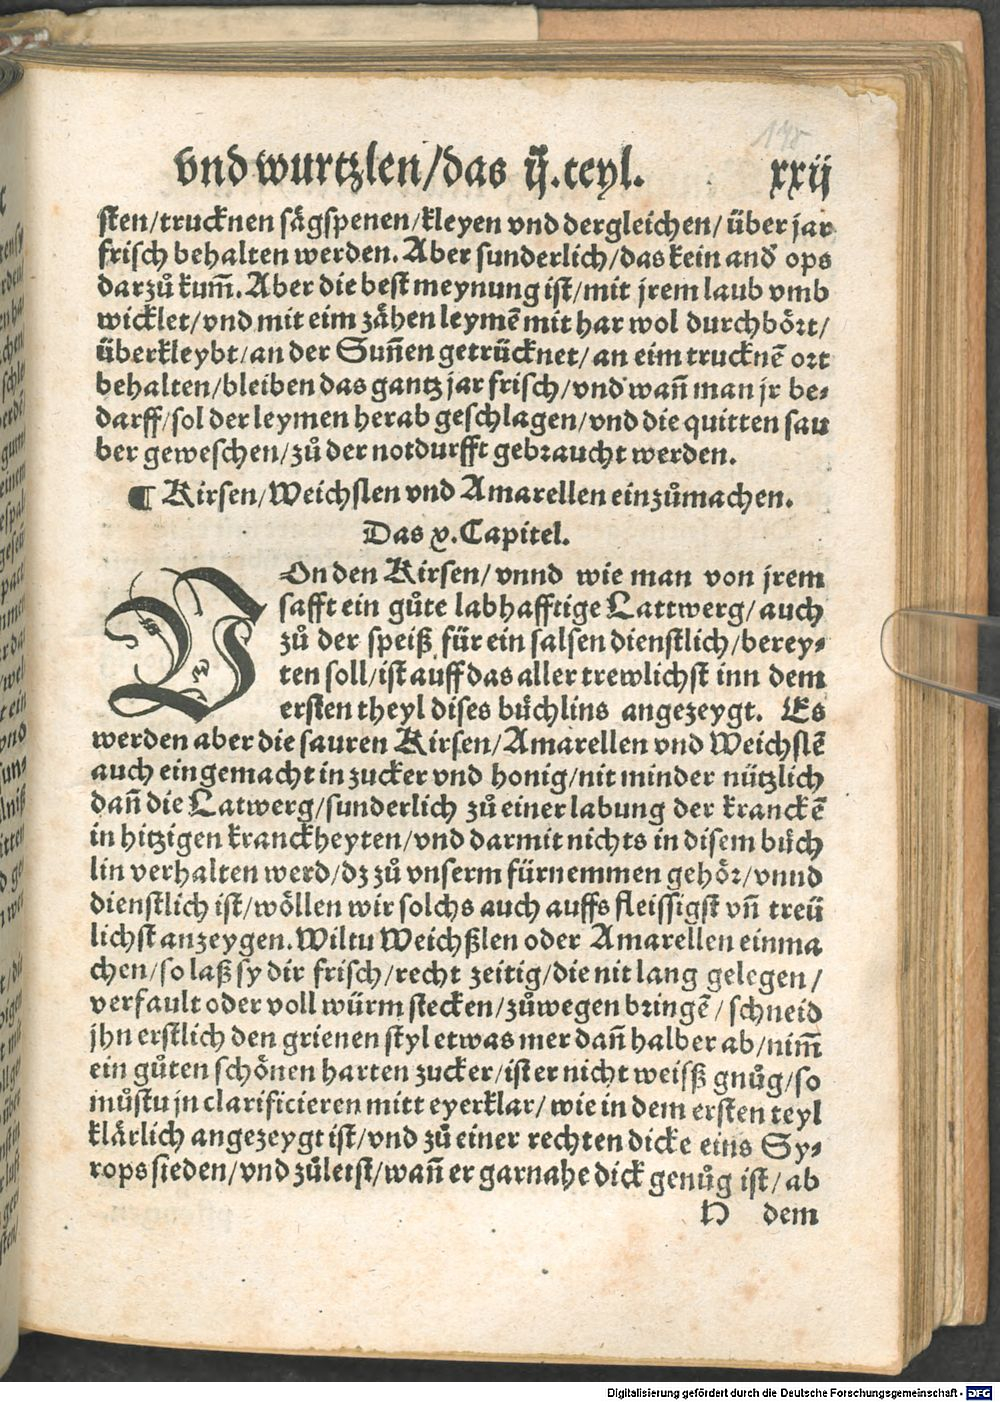 148
vnd wurtzlen/das ij.teyl. xxij
sten/trucknen sägspenen/kleyen vnd dergleichen/ über jar
frisch behalten werden. Aber sunderlich/das kein and̕ ops
darzů kum̃. Aber die best meynung ist/mit jrem laub vmb
wicklet/vnd mit eim zähen leymẽ mit har wol durchbört/
überkleybt/an der Suñen getrücknet/an eim trucknẽ ort
behalten/bleiben das gantz jar frisch/vnd wañ man jr be⸗
darff/sol der leymen herab geschlagen/vnd die quitten sau
ber geweschen/zů der notdurfft gebraucht werden.
¶ Kirsen/Weichslen vnd Amarellen einzůmachen.
Das v.Capitel.
VOn den Kirsen/vnnd wie man von jrem
safft ein gůte labhafftige Lattwerg/auch
zů der speiß für ein salsen dienstlich/berey⸗
ten soll/ist auff das aller trewlichst inn dem
ersten theyl dises bůchlins angezeygt. Es
werden aber die sauren Kirsen/Amarellen vnd Weichslẽ
auch eingemacht in zucker vnd honig/nit minder nützlich
dañ die Latwerg/sunderlich zů einer labung der kranckẽ
in hitzigen kranckheyten/vnd darmit nichts in disem bůch
lin verhalten werd/dz zů vnserm fürnemmen gehör/vnnd
dienstlich ist/wöllen wir solchs auch auffs fleissigst vñ treü
lichst anzeygen. Wiltu Weichßlen oder Amarellen einma
chen/so laß sy dir frisch/recht zeitig/die nit lang gelegen/
verfault oder voll würm stecken/zůwegen bringẽ/schneid
jhn erstlich den grienen styl etwas mer dañ halber ab/nim̃
ein gůten schönen harten zucker/ist er nicht weisß gnůg/so
můstu jn clarificieren mitt eyerklar/wie in dem ersten teyl
klärlich angezeygt ist/vnd zů einer rechten dicke eins Sy⸗
rops sieden/vnd zůletst/wañ er garnahe dick genůg ist/ab
H dem
Digitalisierung gefördert durch die Deutsche Forschungsgemeinschaft - DFG